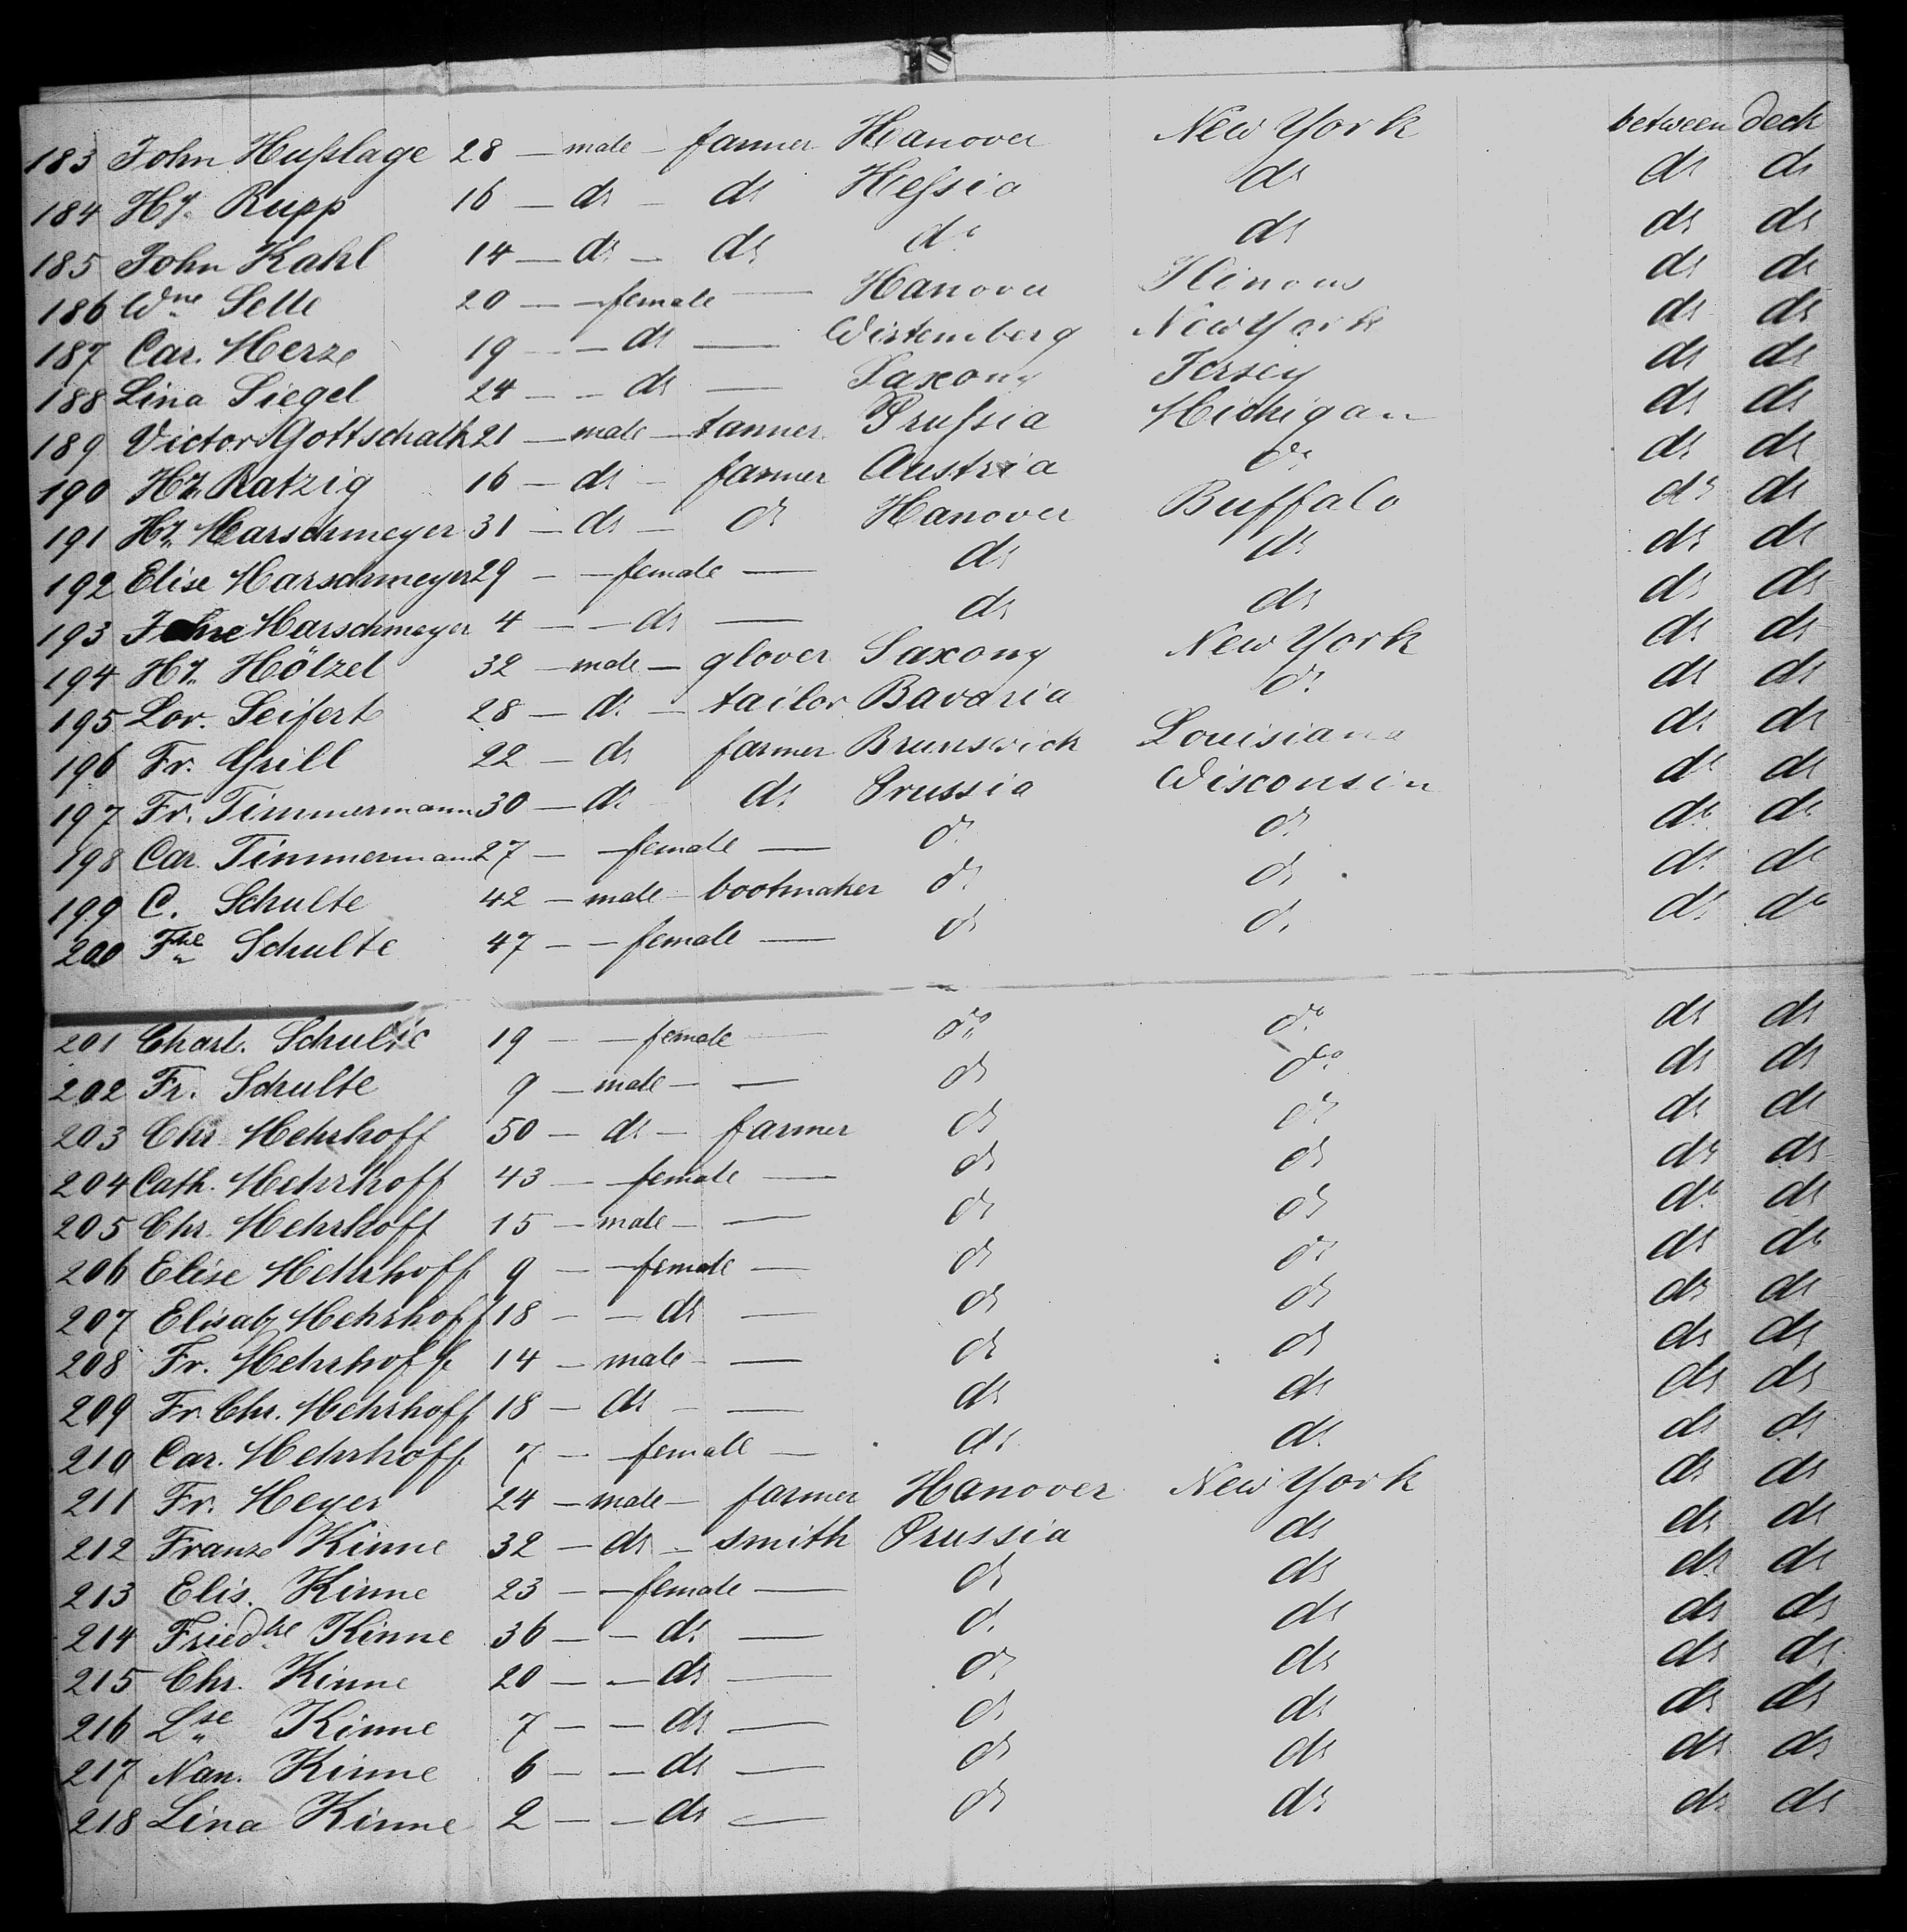 183 John Hußlage 28 — male — farmer Hanover New York between deck
184 Hy. Rupp 16 — do — do Heßia do do do
185 John Kahl 14 — do — do do do do do
186 Wne Selle 20 — — female — Hanover Ilinous do do
187 Car. Herze 19 — — do — Wirtemberg New York do do
188 Lina Siegel 24 — — do — Saxony Jersey do do
189 Victor Gottschalk 21 — male — tanner Prußia Michigan do do
190 Hy. Ratzig 16 — do — farmer Austria do do do
191 Hy. Marschmeyer 31 — do — do Hanover Buffalo do do
192 Elise Marschmeyer 29 — — female — do do do do
193 Marschmeyer 4 — — do — do do do do
194 Hy. Hölzel 32 — male — glover Saxony New York do do
195 Lor. Seifert 28 — do — tailor Bavaria do do do
196 Fr. Grill 22 — do farmer Brunswick Louisiana do do
197 Fr. Timmermann 30 — do do Prussia Wisconsin do do
198 Car. Timmermann 27 — — female — do do do do
199 C. Schulte 42 — male — bootmaker do do do do
200 Fke Schulte 47 — — female — do do do do
201 Charl. Schulte 19 — — female do do do do
202 Fr. Schulte 9 — male — — do do do do
203 Chr. Mehrhoff 50 — do — farmer do do do do
204 Cath. Mehrhoff 43 — — female — do do do do
205 Chr. Mehrhoff 15 — male — — do do do do
206 Elise Mehrhoff 9 — — female — do do do do
207 Elisab. Mehrhoff 18 — — do — do do do do
208 Fr. Mehrhoff 14 — male — — do do do do
209 Fr. Chr. Mehrhoff 18 — do — — do do do do
210 Car. Mehrhoff 7 — — female — do do do do
211 Fr. Meyer 24 — male — farmer Hanover New York do do
212 Franz Kinne 32 — do — smith Prussia do do do
213 Elis. Kinne 23 — — female — do do do do
214 Friedke Kinne 36 — — do — do do do do
215 Chr. Kinne 20 — — do — do do do do
216 Lse Kinne 7 — — do — do do do do
217 Nan. Kinne 6 — — do — do do do do
218 Lina Kinne 2 — — do — do do do do